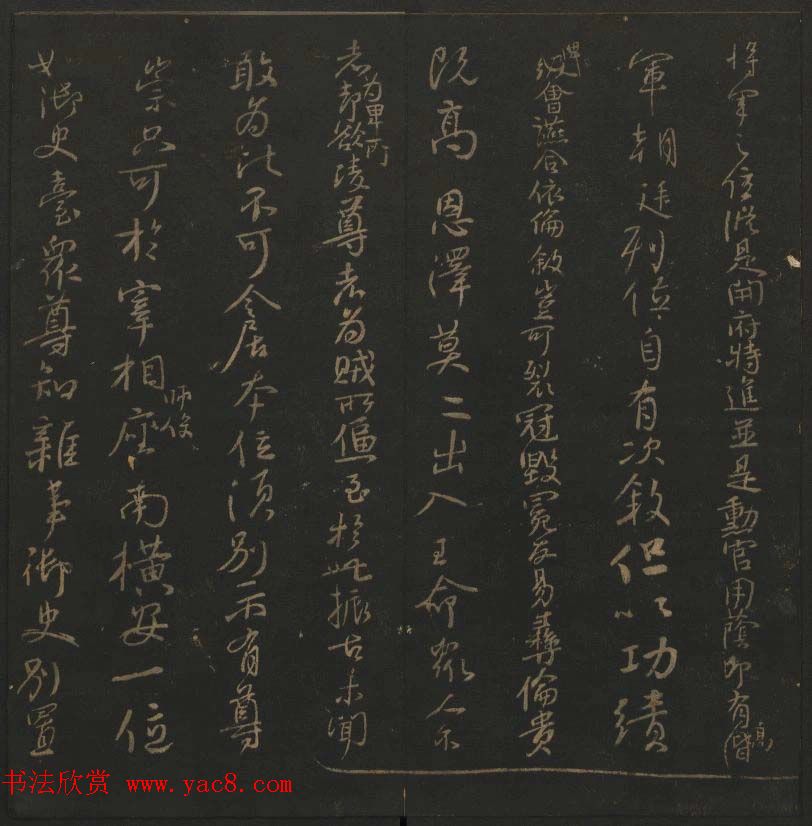 將軍之位從是開府特進並是勳官用蔭即有高階
軍朝廷列位自有次敘但以功績
會讌合依倫敘豈可裂冠毀冕反易彝倫貴
既高恩澤莫二出入王命眾人不
者為卑所却欲凌尊者為賊所逼至於此振古未聞
敢為比不可令居本位須別示有尊
崇只可於宰相師保座南橫安一位
如御史臺眾尊知雜事御史別置
书法欣赏 www.yac8.com